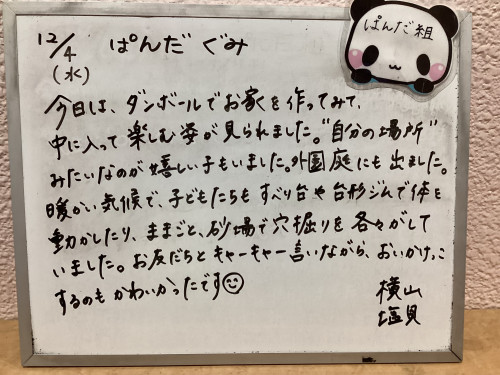 12/4
(水)
ぱんだ ぐみ
ぱんだ組
今日は、ダンボールでお家を作ってみて、
中に入って楽しむ姿が見られました。"自分の場所"
みたいなのが嬉しい子もいました。外園庭にも出ました。
暖かい気候で、子どもたちもすべり台や台形ジムで体を
動かしたり、ままごと、砂場で穴掘りを各々がして
いました。お友だちとキャーキャー言いながら、おいかけっこ
するのもかわいかったです☺
横山
塩貝